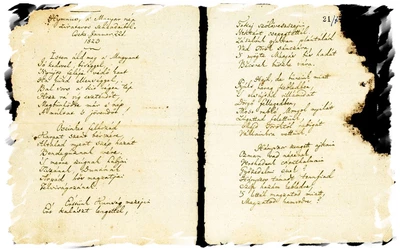 Hymnus, a' Magyar nép
zivataros századaiból.
Cseke, Januar. 22d
1823
Isten áld meg a' Magyart
Jó kedvvel, bőséggel,
Nyújts feléje védő kart
Ha küzd ellenséggel;
Bal sors a' kit régen tép
Hozz rá víg esztendőt,
Megbünhödte már a' nép
A' multat 's jövendőt!
Őseinket felhozád
Kárpát szent bérczére,
Általad nyert szép hazát
Bendegúznak vére.
'S merre zúgnak habjai
Tiszának, Dunának,
Árpád hős magzatjai
Felvirágozának.
Értünk Kunság mezein
Ért kalászt lengettél,
Tokaj szőlővesszein
Nektárt csepegtettél.
Zászlónk gyakran plántálád
Vad török sánczára,
'S nyögte Mátyás bús hadát
Bécsnek büszke vára.
Hajh, de bűneink miatt
Gyúlt harag kebledben,
'S elsújtád villámidat
Dörgő fellegedben,
Most rabló Mongol nyilát
Zúgattad felettünk,
Majd Töröktől rabigát
Vállainkra vettünk.
Hányszor zengett ajkain
Ozman vad népének
Vert hadunk csonthalmain
Győzedelmi ének!
Hányszor támadt tenfiad
Szép hazám kebledre,
'S lettél magzatod miatt
Magzatod hamvvedre?